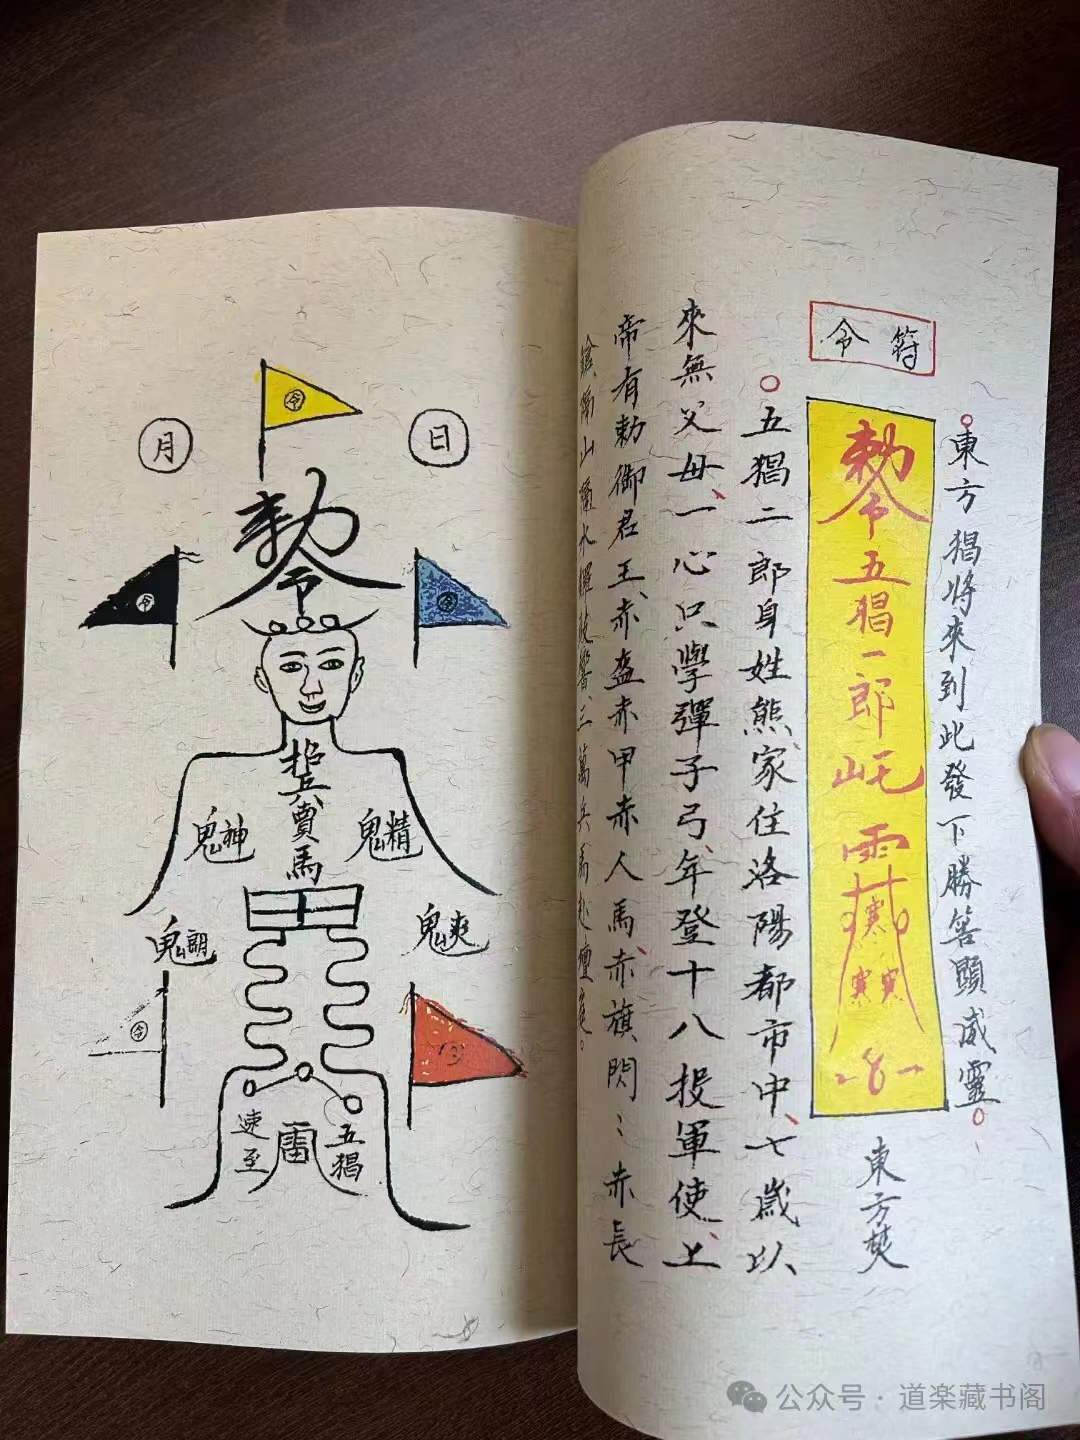 符令
東方猖將來到此發下勝筶顯威靈。
勅令五猖一郎
東方焚
五猖二郎身姓熊、家住洛陽都市中、七歲以
來無父母、一心只學彈子弓、年登十八投軍使、上
帝有勅御君王、赤盔赤甲赤人馬、赤旗閃：赤長
山 水 三萬兵馬赴壇庭。
日
月
令
勅令
令
令
魁
神
精
賣馬
朗
爽
令
五猖
雷
速至
公众号 · 道楽藏书阁